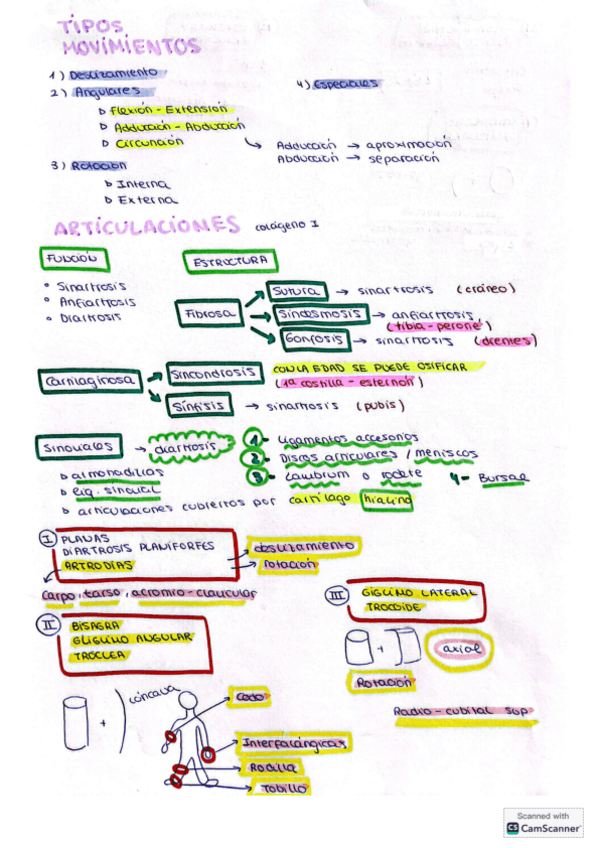 TIPOS
MOVIMIENTOS
1) Deslizamiento
2) Angulares
4) Especiales
Flexión - Extensión
Adducción - Abducción
Circunción
Adducción → aproximación
Abducción → separación
3) Rotación
Interna
Externa
ARTICULACIONES colágeno I
FUNCIÓN
ESTRUCTURA
Sinartrosis
Anfiartrosis
Diartrosis
Fibrosa
Sutura → sinartrosis (cráneo)
Sindesmosis → anfiartrosis
(tibia - peroné)
Gonfosis → sinartrosis (dientes)
Cartilaginosa
Sincondrosis CON LA EDAD SE PUEDE OSIFICAR
(1ª costilla - esternón)
Sínfisis → sinartrosis (pubis)
Sinoviales → diartrosis
1- Ligamentos accesorios
2- Discos articulares / meniscos
3- Lambrum o rodete
4- Bursae
almohadillas
liq. sinovial
articulaciones cubiertos por cartílago hialino
I PLANAS
DIARTROSIS PLANIFORFES
ARTRODIAS
deslizamiento
rotación
carpo, tarso, acromio - clavicular
II BISAGRA
GLIGLIMO ANGULAR
TRÓCLEA
III GIGLIMO LATERAL
TROCOIDE
+
axial
Rotación
Radio - cubital sup
+
cóncava
Codo
Interfalángicas
Rodilla
Tobillo
Scanned with
CS CamScanner